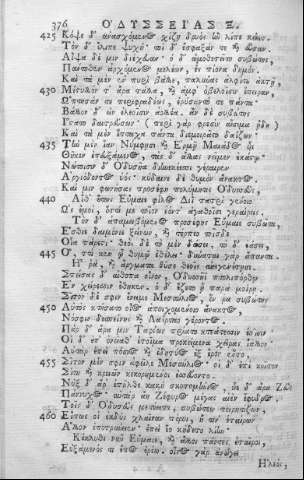 376 ΟΔΥΣΣΕΙΑΣ Ξ.
425 Κόψε δ' ἀνασχόμεν@ σχίζῃ δρυὸς ἣν λίπε κείων.
Τὸν δ' ἔλιπε ψυχή· τοὶ δ' ἔσφαξάν τε καὶ εὗσαν.
Αἶψα δέ μιν διέχευαν· ὁ δ' ὠμοθετεῖτο συβώτης,
Πάντοθεν ἀρχόμεν@ μελέων, ἐς πίονα δημόν.
Καὶ τὰ μὲν ἐν πυρὶ βάλλε, παλύνας ἀλφίτου ἀκτῇ,
430 Μίστυλλόν τ' ἄρα τἆλλα, καὶ ἀμφ' ὀβελοῖσιν ἔπειραν,
Ὤπτησάν τε περιφραδέως, ἐρύσαντό τε πάντα·
Βάλλον δ' εἰν ἐλεοῖσιν ἀολλέα. ἂν δὲ συβώτης
Ἵστατο δαιτρεύσων· (περὶ γὰρ φρεσὶν αἴσιμα ᾔδη)
Καὶ τὰ μὲν ἕπταχα πάντα διεμοιρᾶτο δαΐζων·
435 Τὴν μὲν ἴαν Νύμφῃσι καὶ Ἑρμῇ Μαιάδ@ υἷι
Θῆκεν ἐπευξάμεν@, τὰς δ' ἄλλας νεῖμεν ἑκάστῳ·
Νώτοισιν δ' Ὀδυσῆα διηνεκέεσσι γέραιρεν
Ἀργιόδοντ@ ὑός· κύδαινε δὲ θυμὸν ἄνακτ@.
Καί μιν φωνήσας προσέφη πολύμητις Ὀδυσσεύς,
440 Αἴθ' οὕτως Εὔμαιε φίλ@ Διὶ πατρὶ γένοιο
Ὡς ἐμοί, ὅττι με τοῖον ἐόντ' ἀγαθοῖσι γεραίρεις.
Τὸν δ' ἀπαμειβόμεν@ προσέφης Εὔμαιε συβῶτα,
Ἔσθιε δαιμόνιε ξείνων, καὶ τέρπεο τοῖσδε
Οἷα πάρεστι· θεὸς δὲ τὸ μὲν δώσει, τὸ δ' ἐάσει,
445 Ὅ, ττι κεν ᾧ θυμῷ ἐθέλῃ· δύναται γὰρ ἅπαντα.
Ἦ ῥα, καὶ ἄργματα θῦσε θεοῖς αἰειγενέτῃσι.
Σπείσας δ' αἴθοπα οἶνον, Ὀδυσσῆϊ πτολιπόρθῳ
Ἐν χείρεσσιν ἔθηκεν· ὁ δ' ἕζετο ᾗ παρὰ μοίρῃ.
Σῖτον δέ σφιν ἔνειμε Μεσαύλι@, ὅν ῥα συβώτης
450 Αὐτὸς κτήσατο οἶ@ ἀποιχομένοιο ἄνακτ@,
Νόσφιν δεσποίνης καὶ Λαέρταο γέροντ@.
Πὰρ δ' ἄρα μιν Ταφίων πρίατο κτεάτεσσιν ἑοῖσιν
Οἱ δ' ἐπ' ὀνείαθ' ἑτοῖμα προκείμενα χεῖρας ἴαλλον
Αὐτὰρ ἐπεὶ πόσι@ καὶ ἐδητύ@ ἐξ ἔρον ἕντο,
455 Σῖτον μέν σφιν ἀφεῖλε Μεσαύλι@· οἱ δ' ἐπὶ κοῖτον
Σίτου καὶ κρειῶν κεκορημένοι ἐσσεύοντο·
Νὺξ δ' ἄρ' ἐπῆλθε κακὴ σκοτομήνι@, ὗε δ' ἄρα Ζεὺς
Πάννυχ@· αὐτὰρ ἄη Ζέφυρ@ μέγας αἰὲν ἔφυδρ@.
Τοῖς δ' Ὀδυσσεὺς μετέειπε, συβώτεω πειρητίζων,
460 Εἴπως οἱ ἐκδὺς χλαῖναν πόροι, ἤ τιν' ἑταίρων
Ἄλλον ἐποτρύνειεν· ἐπεί ἑο κήδετο λίην·
Κέκλυθι νῦν Εὔμαιε, καὶ ἄλλοι πάντες ἑταῖροι,
Εὐξάμενός τι ἔπ@ ἐρέω. οἶν@ γὰρ ἀνώγει
Ἠλεὸς,